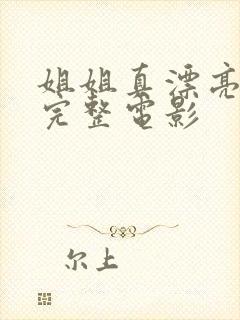 姐姐真漂亮
完整电影
尔上